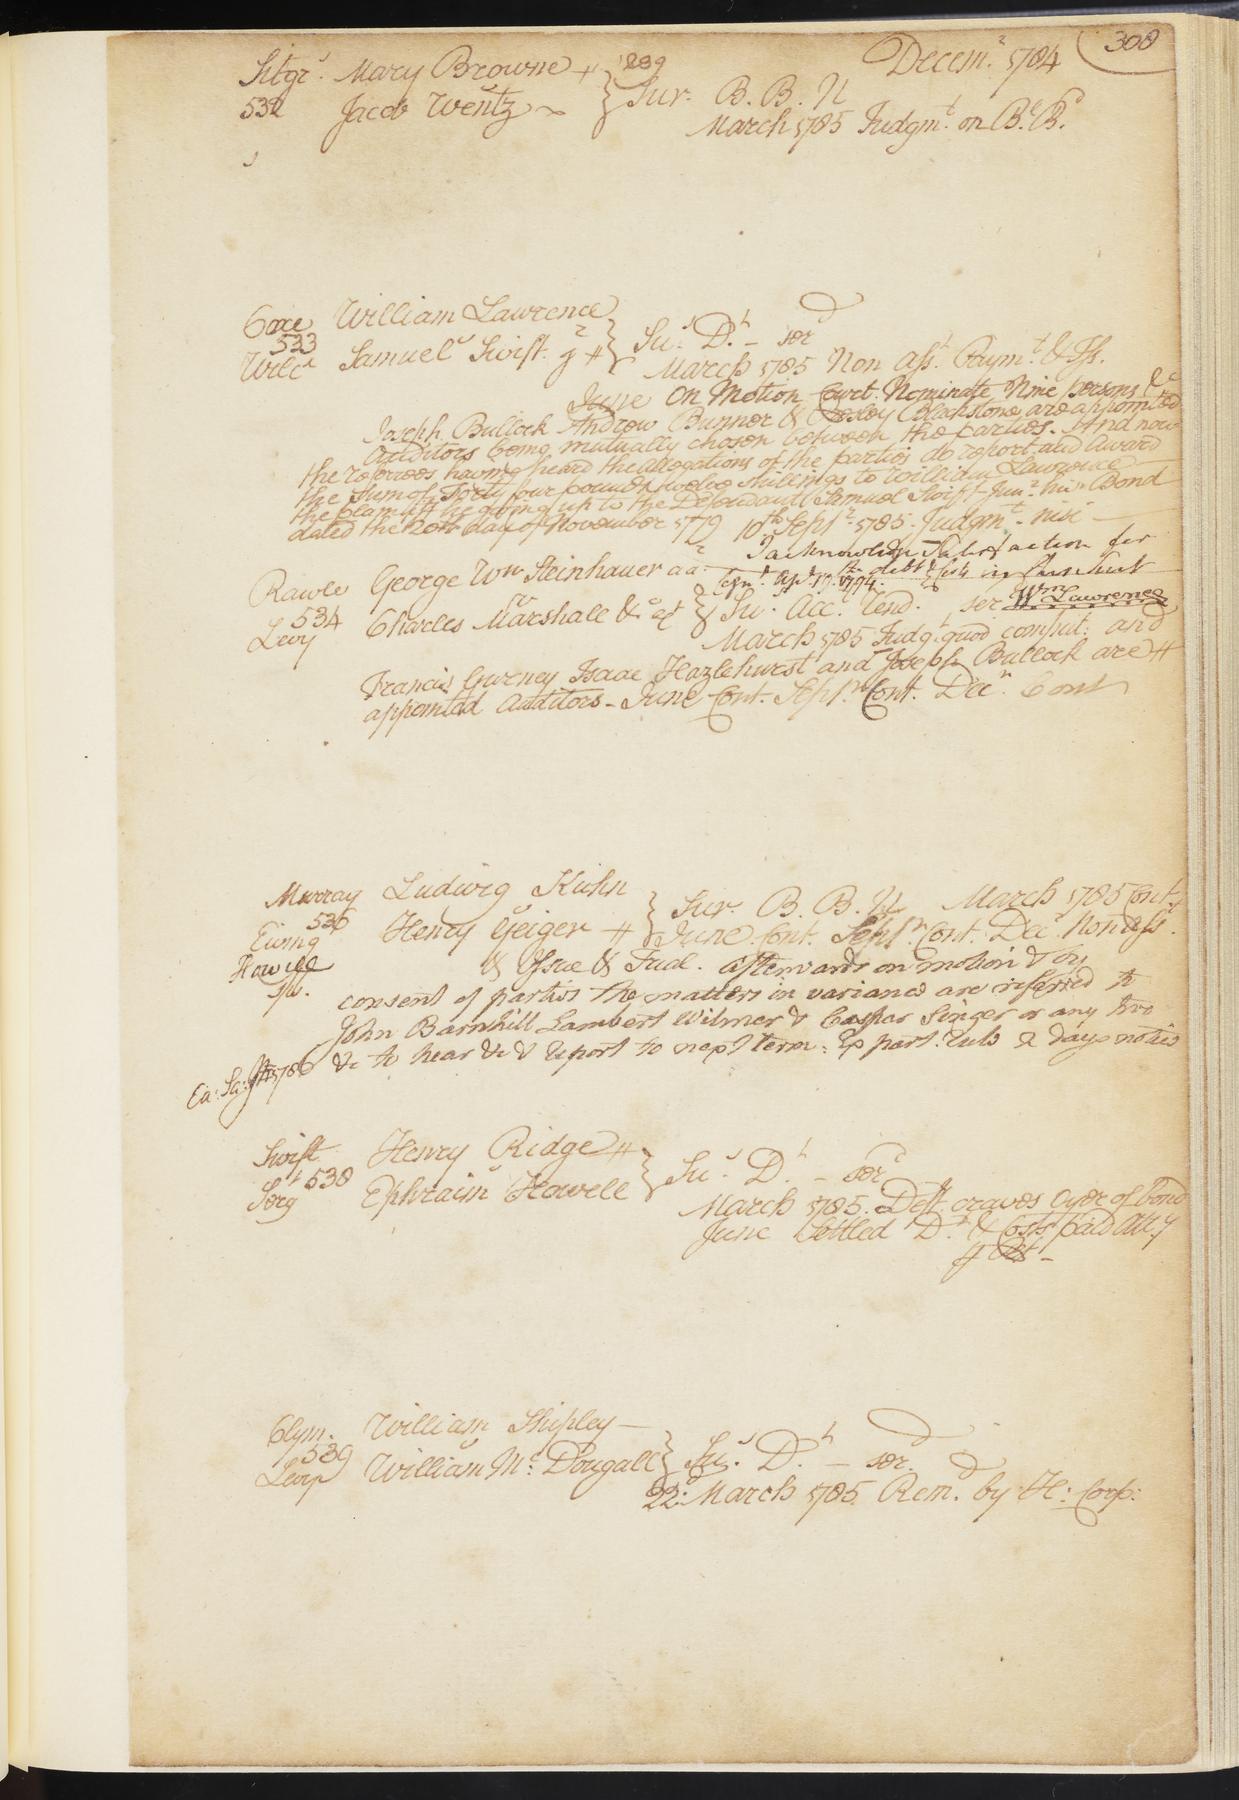 Decem.r 1784 308
Sitgr.s Mary Browne + 289
532 Jacob Wentz } Sur. B. B. N
March 1785 Judgm.t on B. B.
Coxe William Lawrence
533
Wilc.x Samuel Swift jr + } Su.s D.t – ser
March 1785 Non Ass.t Paym.t & Iss.
June On Motion Court Nominate Nine persons &c
Joseph Bullock Andrew Bunner & Presley Blackstone are appointed
Auditors being mutually chosen between the parties. And now
the referees having heard the allegations of the parties do report and award
the sum of Forty four pounds twelve shillings to William Lawrence
the plaintiff he giving up to the Defendant Samuel Swift Jun.r his Bond
dated the 20th day of November 1779 10th Sept.r 1785 Judgm.t nisi
I acknowledge Satisfaction for
the debt & costs in this suit
Ap.l 17. 1794.
W.m Lawrence
Rawle George Wm Steinhauer aa.r
534
Levy Charles Marshall &c } Su. Acc.t Rend. ser
March 1785 Judg.t quod comput. and
Francis Gurney Isaac Hazlehurst and Joseph Bullock are +
appointed Auditors – June Cont. Sept.r Cont. Dec.r Cont
Murray Ludwig Kuhn
536
Ewing Henry Geiger + } Sur. B. B. N March 1785 Cont.
June Cont. Sept.r Cont. Dec.r Non Ass.
Howell & Issue & Trial. afterwards on motion & by
consent of parties the matters in variance are referred to
John Barnhill Lambert Wilmer & Caspar Singer or any two
&c to hear &c & report to next term: Ex part. rule 2 days notice
Ca: Sa: 1786
Swift Henry Ridge +
538
Serg.t Ephraim Howell } Su.s D.t – ser
March 1785. Deft. craves Oyer of Bond
June Settled D.t & Costs paid Att.y
Clym. William Shipley
539
Levy William Mc Dougall } Su.s D.t – ser.
22: March 1785 Rem. by H: Corp: